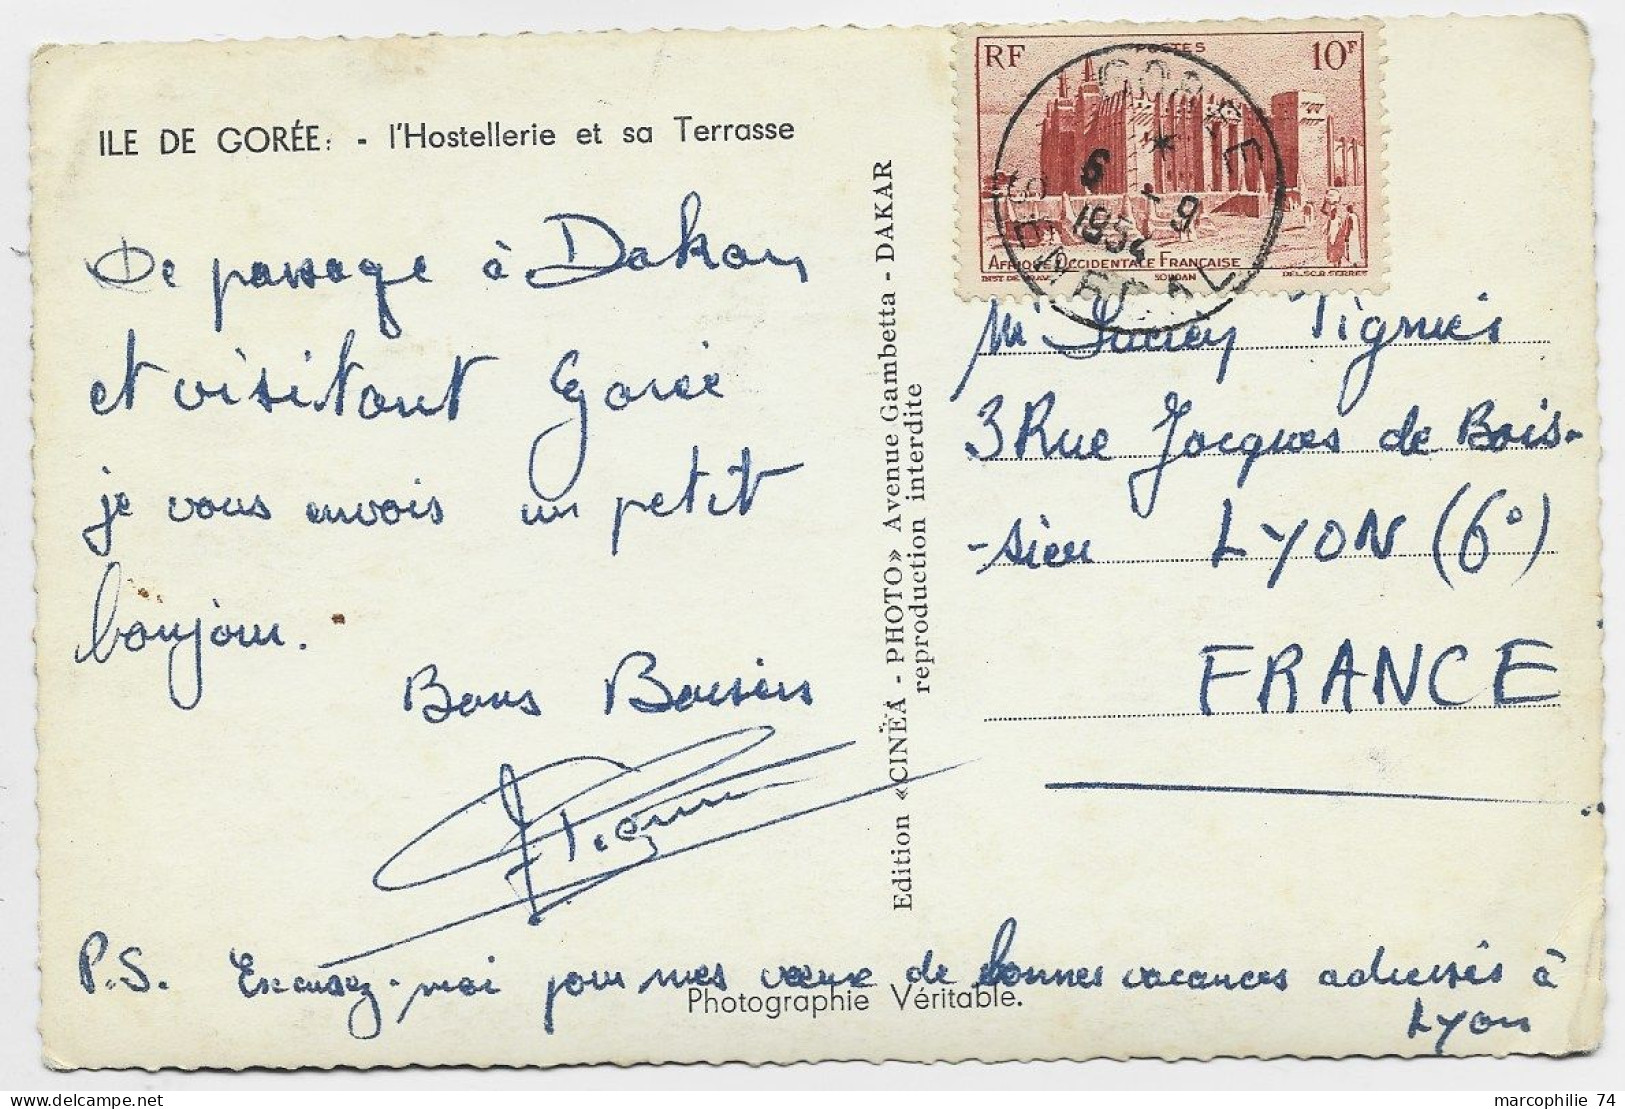 ILE DE GORÉE: - l'Hostellerie et sa Terrasse
De passage à Dakar
et visitant Gorée
je vous envois un petit
bonjour.
Bons Baisers
P.S. Excusez-moi pour mes vœux de bonnes vacances adressés à
Lyon
Photographie Véritable.
Edition «CINÉA - PHOTO» Avenue Gambetta - DAKAR
reproduction interdite
RF POSTES 10F
AFRIQUE OCCIDENTALE FRANÇAISE
SOUDAN
DEL.SC.R.SERRES
GOREE
6 - 9
1954
SENEGAL
Mr Tignères
3 Rue Jacques de Bois-
-sieu LYON (6°)
FRANCE
marcophilie 74